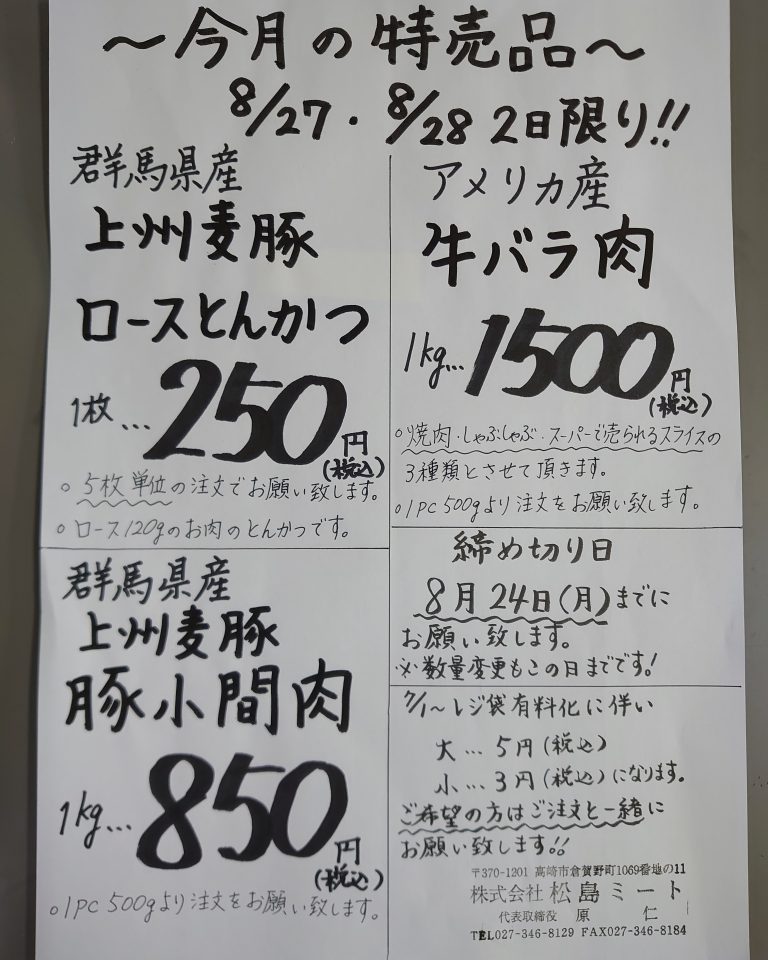 ～今月の特売品～
8/27・8/28 2日限り!!
群馬県産
上州麦豚
ロースとんかつ
1枚…250円
(税込)
○5枚単位の注文でお願い致します。
○ロース120gのお肉のとんかつです。
群馬県産
上州麦豚
豚小間肉
1kg…850円
(税込)
○1PC 500gより注文をお願い致します。
アメリカ産
牛バラ肉
1kg…1500円
(税込)
○焼肉・しゃぶしゃぶ・スーパーで売られるスライスの
3種類とさせて頂きます。
○1PC 500gより注文をお願い致します。
締め切り日
8月24日(月)までに
お願い致します。
※数量変更もこの日までです!
7/1～レジ袋有料化に伴い
大…5円(税込)
小…3円(税込)になります。
ご希望の方はご注文と一緒に
お願い致します!!
〒370-1201 高崎市倉賀野町1069番地の11
株式会社 松島ミート
代表取締役 原 仁
TEL027-346-8129 FAX027-346-8184